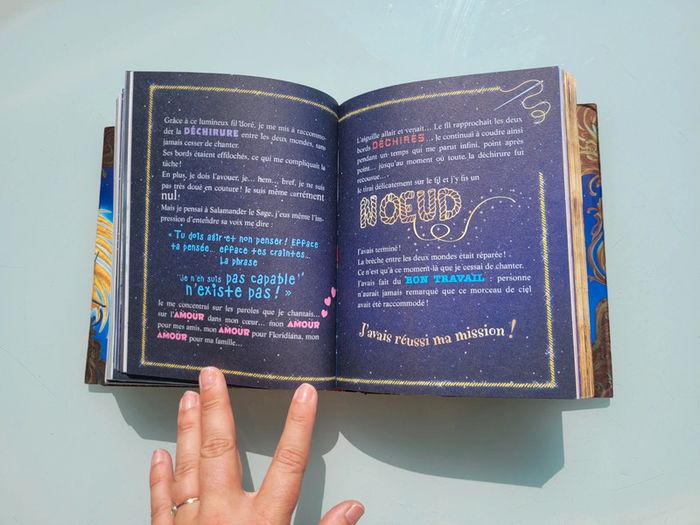 Grâce à ce lumineux fil doré, je me mis à raccommo-
der la DÉCHIRURE entre les deux mondes, sans
jamais cesser de chanter.
Ses bords étaient effilochés, ce qui me compliquait la
tâche !
En plus, je dois l'avouer, je... hem... bref, je ne suis
pas très doué en couture ! Je suis même carrément
nul !
Mais je pensai à Salamander le Sage, j'eus même l'im-
pression d'entendre sa voix me dire :
« Tu dois agir et non penser ! Efface
ta pensée... efface tes craintes...
La phrase
"Je n'en suis pas capable"
n'existe pas ! »
Je me concentrai sur les paroles que je chantais...
sur l'AMOUR dans mon cœur... mon AMOUR
pour mes amis, mon AMOUR pour Floridiana, mon
AMOUR pour ma famille...
L'aiguille allait et venait... Le fil rapprochait les deux
bords DÉCHIRÉS... Je continuai à coudre ainsi
pendant un temps qui me parut infini, point après
point... jusqu'au moment où toute la déchirure fut
recousue...
Je tirai délicatement sur le fil et j'y fis un
NOEUD
J'avais terminé !
La brèche entre les deux mondes était réparée !
Ce n'est qu'à ce moment-là que je cessai de chanter.
J'avais fait du BON TRAVAIL : personne
n'aurait jamais remarqué que ce morceau de ciel
avait été raccommodé !
J'avais réussi ma mission !